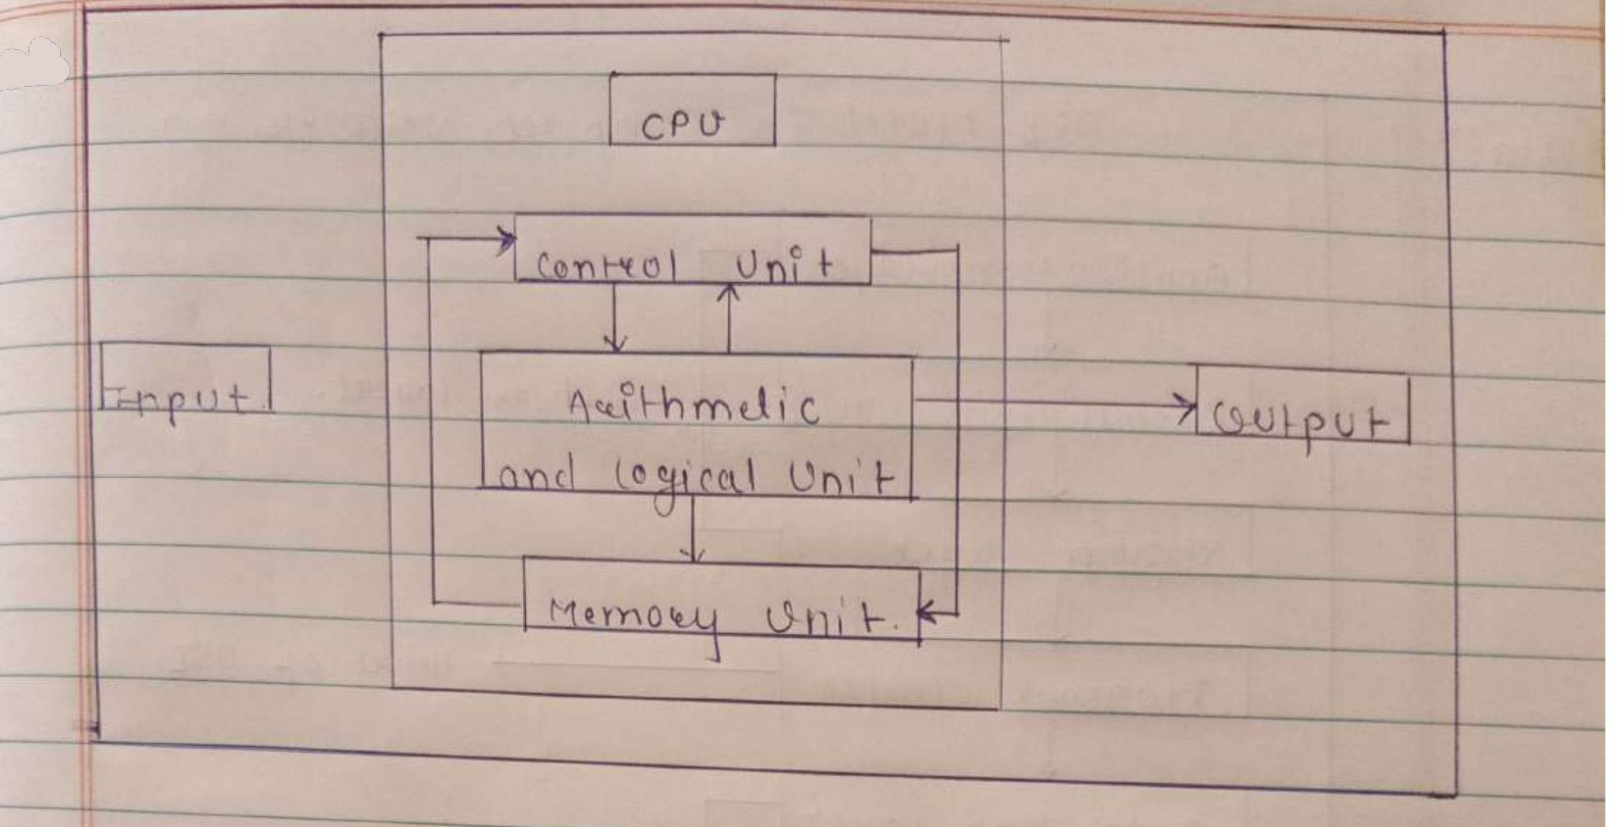 CPU
Control Unit
Input.
Arithmetic
and logical Unit
Output
Memory Unit.